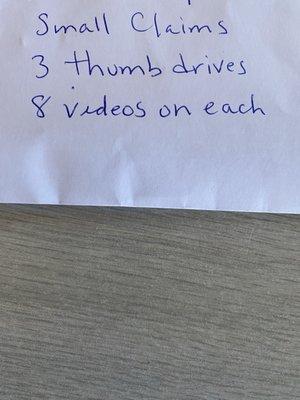 Small Claims
3 thumb drives
8 videos on each